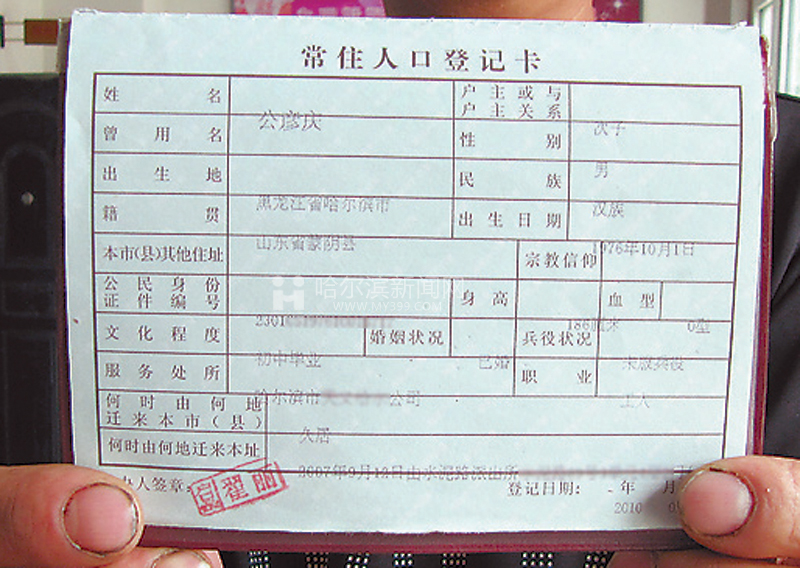 常住人口登记卡
姓名 户主或与户主关系
公彦庆 次子
曾用名 性别
出生地 民族 男
黑龙江省哈尔滨市 汉族
籍贯 出生日期
山东省蒙阴县 1976年10月1日
本市(县)其他住址 宗教信仰
公民身份证件编号 身高 血型
哈尔滨新闻网
WWW.MY399.COM
2301 186厘米 O型
文化程度 婚姻状况 兵役状况
初中毕业 已婚 未服兵役
服务处所 职业
哈尔滨市 公司 工人
何时由何地迁来本市(县)
久居
何时由何地迁来本址
2007年9月12日由水泥路派出所
人签章: 登记日期: 年 月
2010